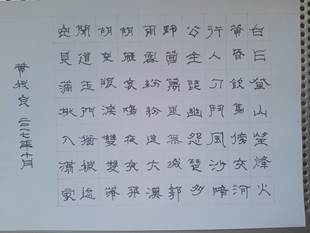 白日登山望烽火
黃昏飲馬傍交河
行人刁斗風沙暗
公主琵琶幽怨多
野營萬里無城郭
雨雪紛紛連大漠
胡雁哀鳴夜夜飛
胡兒眼淚雙雙落
聞道玉門猶被遮
空見蒲桃入漢家
二〇一七年十月